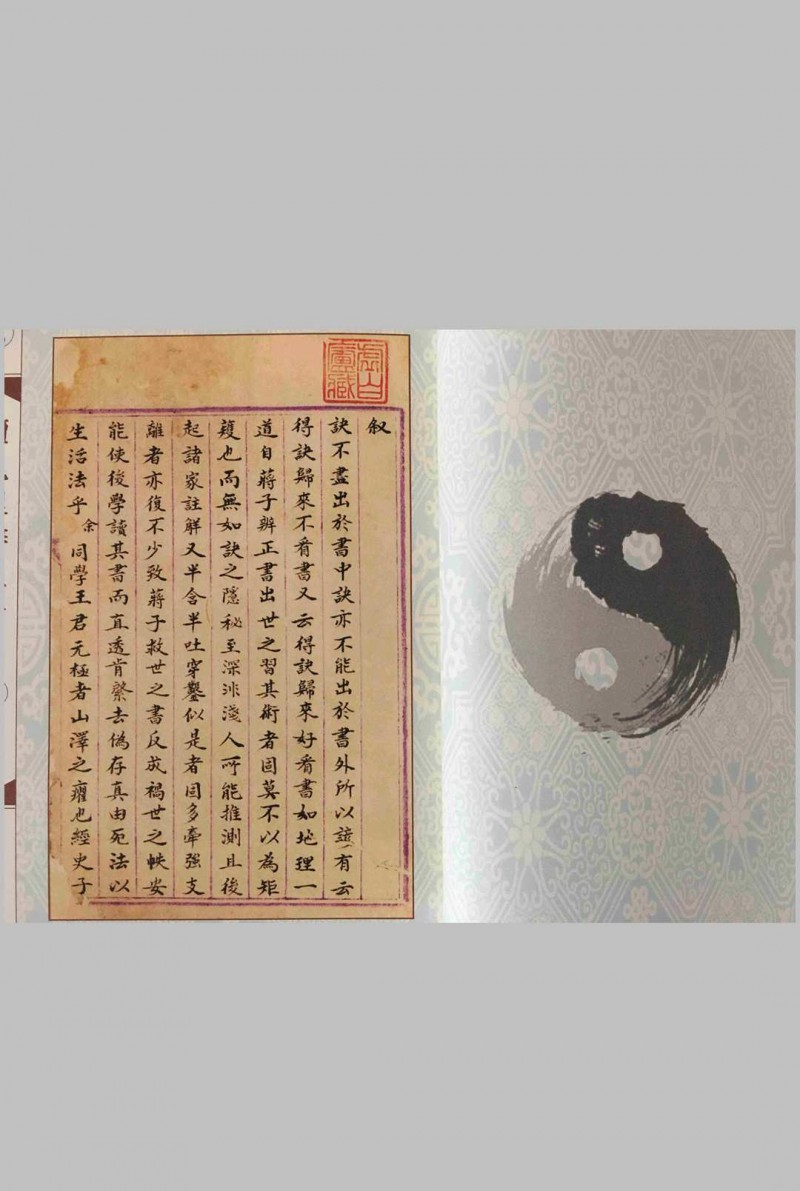 叙
訣不盡出於書中訣亦不能出於書外所以諺有云
得訣歸來不看書又云得訣歸來好看書如地理一
道自蔣子辨正書出世之習其術者固莫不以為矩
矱也而無如訣之隱秘至深非淺人所能推測且後
起諸家註解又半含半吐穿鑿似是者固多牽强支
離者亦復不少致蔣子救世之書反成禍世之帙安
能使後學讀其書而直透肯綮去偽存真由死法以
生活法乎余同學王君元極者山澤之癯也經史子